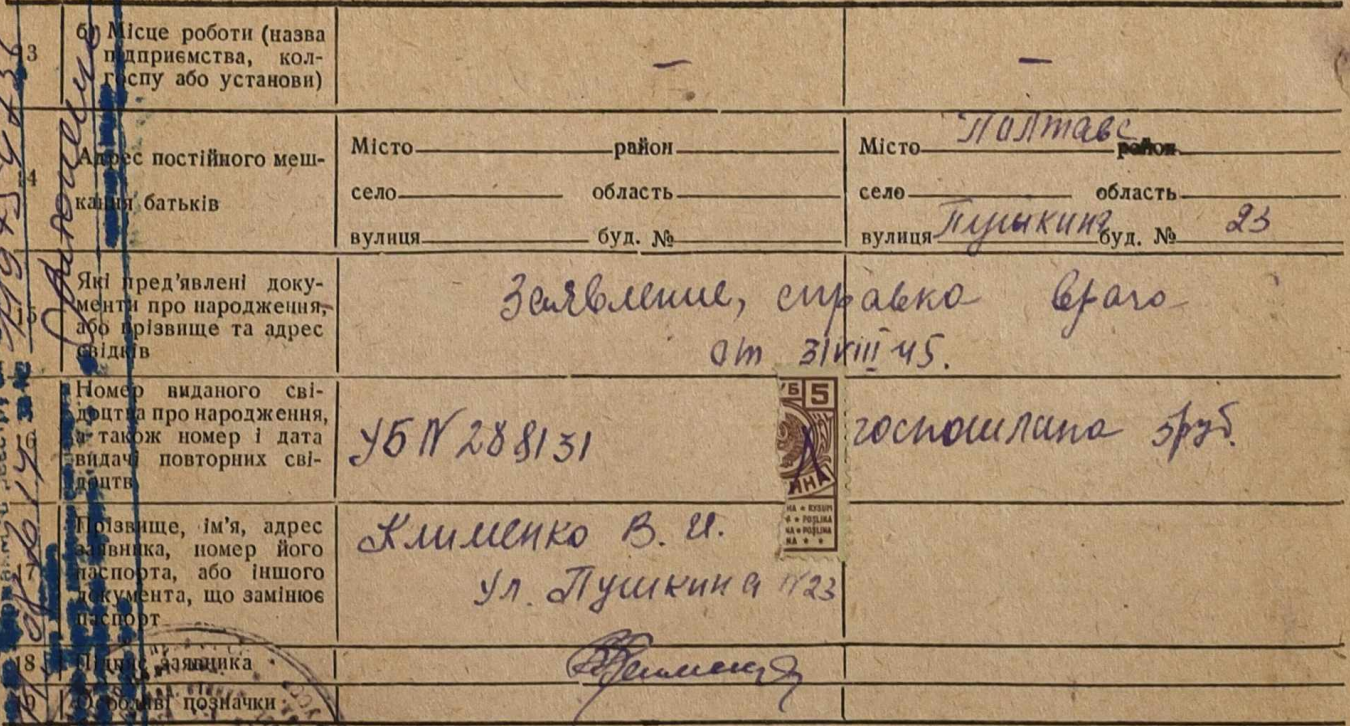 13 б) Місце роботи (назва
підприємства, кол-
госпу або установи)
— —
14 Адрес постійного меш-
кання батьків
Місто район
село область
вулиця буд. №
Місто Полтава район
село область
вулиця Пушкина буд. № 23
15 Які пред'явлені доку-
менти про народження,
або прізвище та адрес
свідків
Заявление, справка врача
от 31 VIII 45.
16 Номер виданого сві-
доцтва про народження,
а також номер і дата
видачі повторних сві-
доцтв
УБ N 288131
госпошлина 5 руб.
5
17 Прізвище, ім'я, адрес
заявника, номер його
паспорта, або іншого
документа, що замінює
паспорт
Клименко В. И.
Ул. Пушкина N 23
18 Підпис заявника
19 Особливі позначки